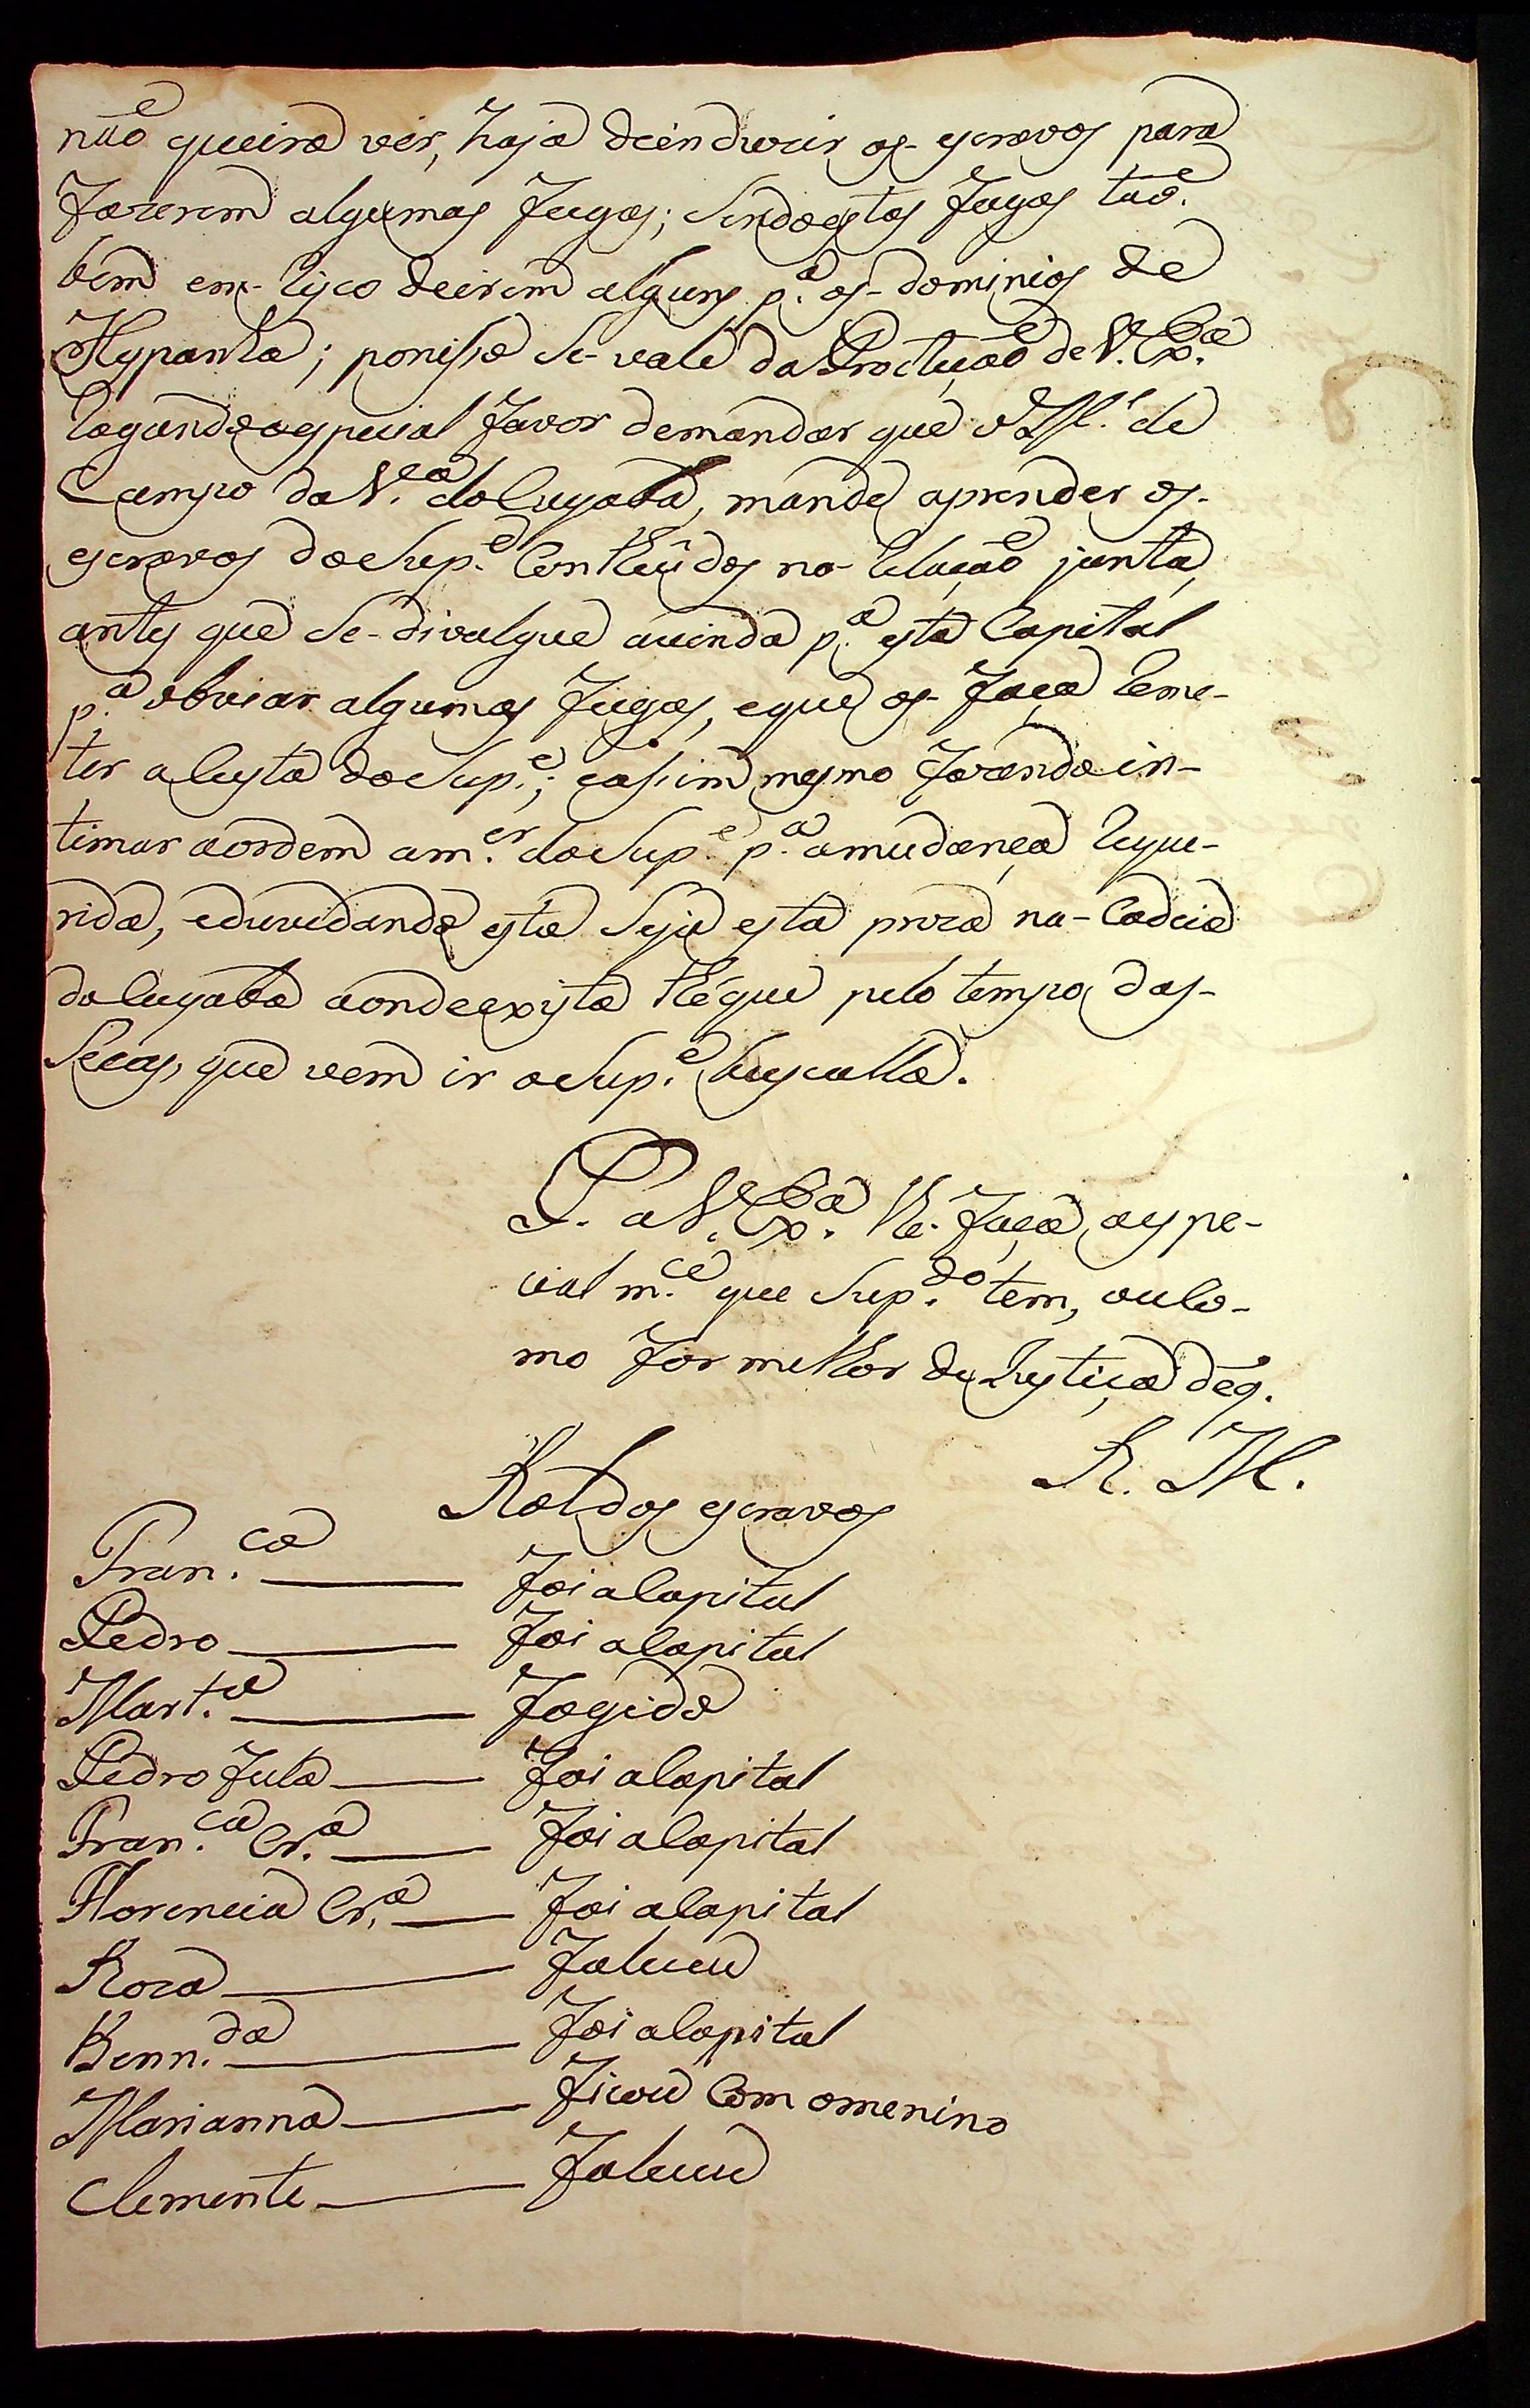 não queira vir, haja deenduzir os escravos para
fazerem algumas fugas; sendoestas fugas tão.
bem em- risco deirem alguns p.ª os- dominios de
Hespanha; porisso se- vale da Protecção de V. Ex.ª
rogandoaespecial favor demandar que o M.e de
Campo da V.ª doCuyabá, mande aprender os-
escravos doSup.e Contheúdos na- relação junta,
antes que se- divulgue avinda p.ª esta Capital
p.ª obviar algumas fugas, eque os- faça reme-
ter acusta doSup.e; easim mesmo fazendo in-
timar aordem am.er doSup.e p.ª amudança reque-
rida, eduvidando esta seja esta preza na- Cadeia
doCuyabá aondeexista thé que pelo tempo das-
Secas, que vem ir oSup.e buscalla.
P. a V. Ex.ª lhe- faça, aespe-
cial m.ce que Sup.do tem, ouco-
mo for melhor de Justiça deq.
R. M.
Rol dos escravos
Fran.co ——— foi aCapital
Pedro ——— foi aCapital
Mart.o ——— fogido
Pedro fula ——— foi aCapital
Fran.co Cr.o ——— foi aCapital
Florencia Cr.a ——— foi aCapital
Roza ——— faleceu
Benn.da ——— foi aCapital
Marianna ——— ficou Com omenino
Clemente ——— faleceu